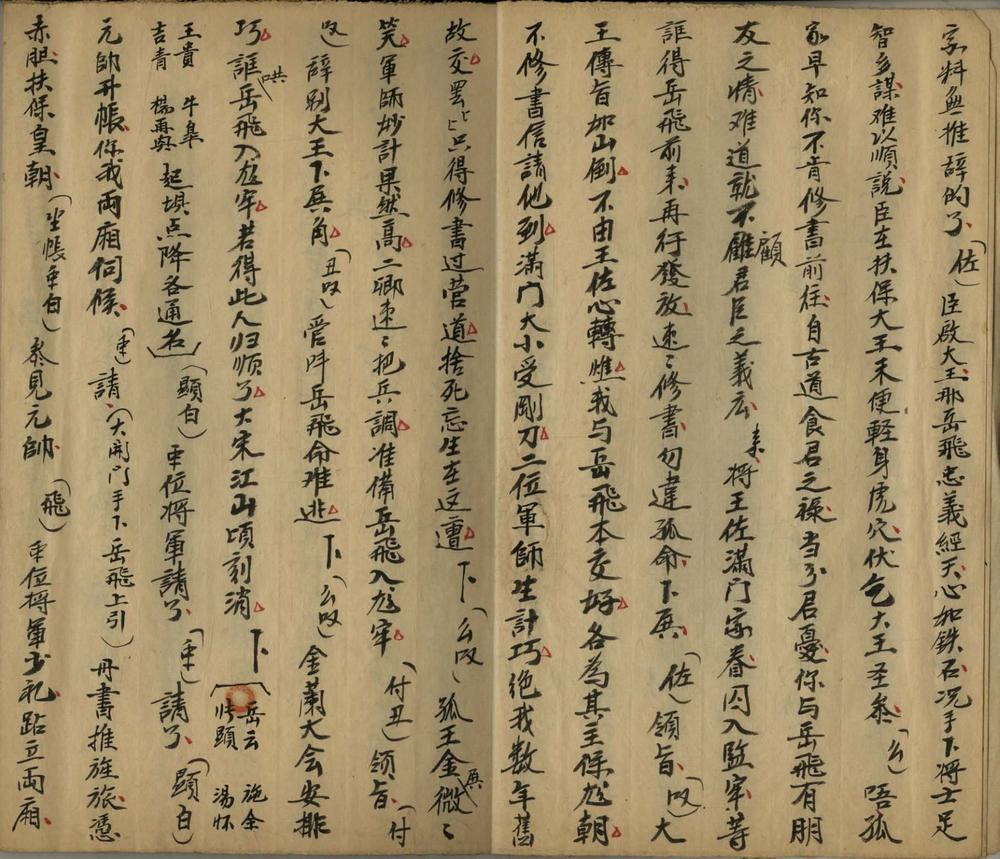 家料無推辞的了（佐）臣啟大王那岳飛忠義經天心如鉄石况手下將士足
智多謀难以順説臣在扶保大王未便軽身虎穴伏乞大王圣叅（么）唔孤
家早知你不肯修書前往自古道食君之禄当分君憂你与岳飛有朋
友之情难道就不顧君臣之義広来將王佐滿門家眷囚入監牢等
誰得岳飛前来再行發放速〻修書勿違孤命下展（佐）領旨（叹）大
王傳旨如山倒不由王佐心轉憔我与岳飛本交好各為其主保尨朝
不修書信請他到滿門大小受剛刀二位軍師生計巧绝我数年舊
故交罢比比只得修書过营道捨死忘生在这遭下（么叹）孤王金展微〻
笑軍師妙計果然高二卿速〻把兵調准備岳飛入尨牢（付丑）领旨（付
叹）辞别大王下兵角（丑叹）管呌岳飛命难逃下（么叹）金蘭大会安排
巧誆哄岳飛入尨牢若得此人归顺了大宋江山頃刻消下（岳云 施余
張顕 湯怀
王貴 牛皋
吉青 楊再兴 起垻点降各通名）（顕白）衆位將軍請了（衆）請了（顕白）
元帅升帳你我両廂伺候（衆）請（大開门手下岳飛上引）丹書推旌旅憑
赤胆扶保皇朝（坐帳衆白）叅見元帅（飛）衆位將軍少礼跕立両廂